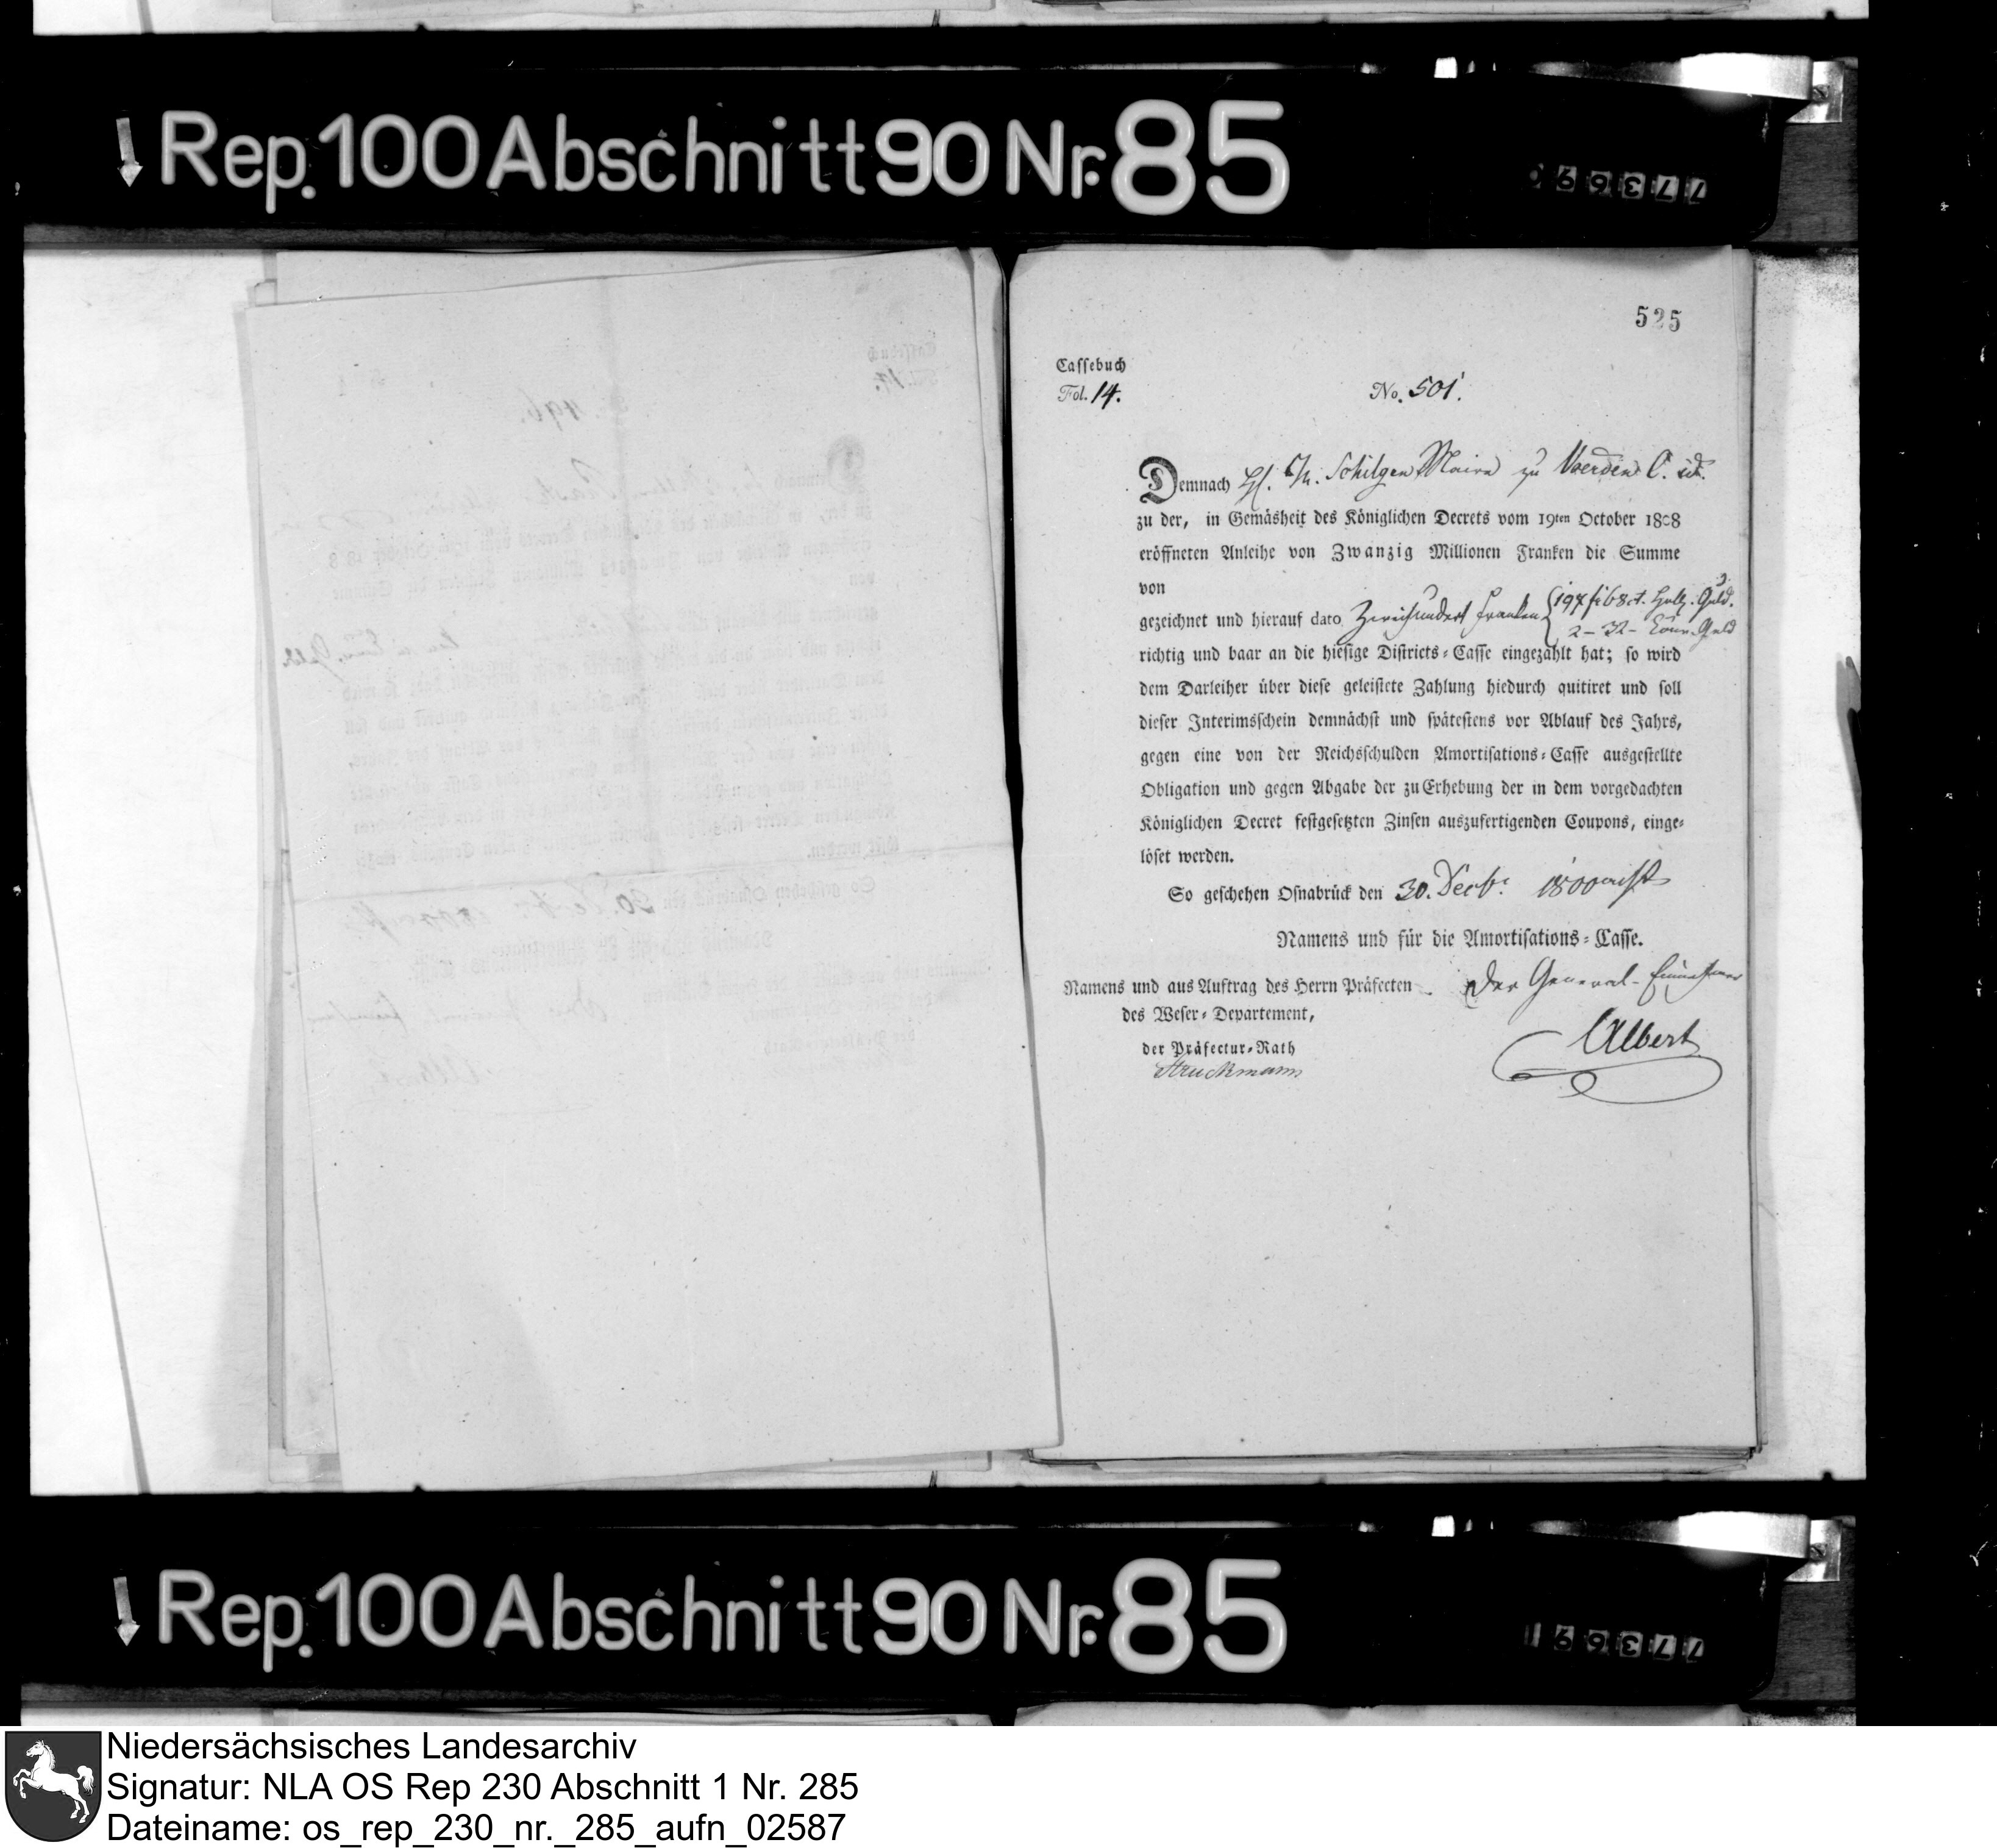 Rep. 100 Abschnitt 90 Nr. 85
525
Cassebuch
Fol. 14.
No. 501.
Demnach H. Schilgen Maire zu Voerden C. id.
zu der, in Gemäsheit des Königlichen Decrets vom 19ten October 1808
eröffneten Anleihe von Zwanzig Millionen Franken die Summe
von
gezeichnet und hierauf dato Zweihundert Franken
richtig und baar an die hiesige Districts-Casse eingezahlt hat; so wird
dem Darleiher über diese geleistete Zahlung hiedurch quitiret und soll
dieser Interimsschein demnächst und spätestens vor Ablauf des Jahrs,
gegen eine von der Reichsschulden Amortisations-Casse ausgestellte
Obligation und gegen Abgabe der zu Erhebung der in dem vorgedachten
Königlichen Decret festgesetzten Zinsen auszufertigenden Coupons, einge-
löset werden.
So geschehen Osnabrück den 30. Decbr. 1800 acht
Namens und für die Amortisations-Casse.
Namens und aus Auftrag des Herrn Präfecten
des Weser-Departement,
der Präfectur-Rath
Struckmann
Der General-Einnehmer
Albert
Rep. 100 Abschnitt 90 Nr. 85
Niedersächsisches Landesarchiv
Signatur: NLA OS Rep 230 Abschnitt 1 Nr. 285
Dateiname: os_rep_230_nr._285_aufn_02587